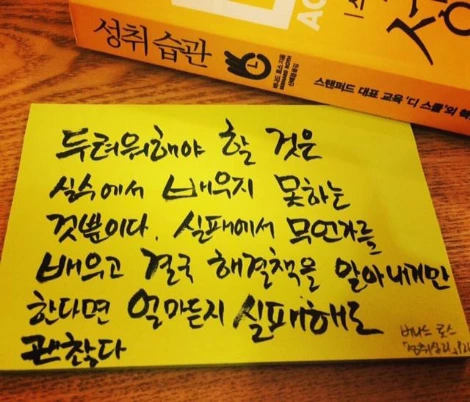 성취 습관
스탠퍼드 대표 교육 '디 스쿨'의
두려워해야 할 것은
실수에서 배우지 못하는
것뿐이다. 실패에서 무언가를
배우고 결국 해결책을 알아내게만
한다면 얼마든지 실패해도
괜찮다
버나드 로스